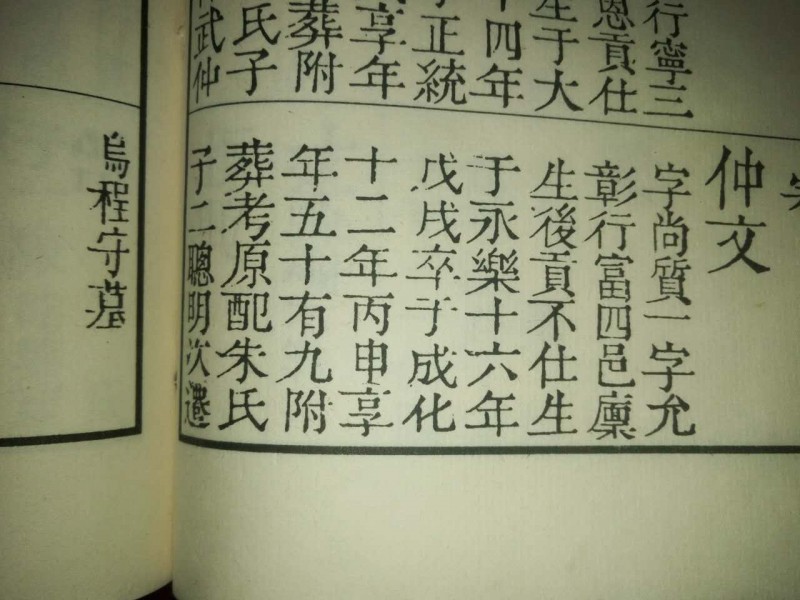 行寧三
恩貢仕
生于大
十四年
正統
享年
葬附
氏子
武仲
仲文
字尚質一字允
彰行富四邑廩
生後貢不仕生
于永樂十六年
戊戌卒于成化
十二年丙申享
年五十有九附
葬考原配朱氏
子二聰明次遷
烏程守墓